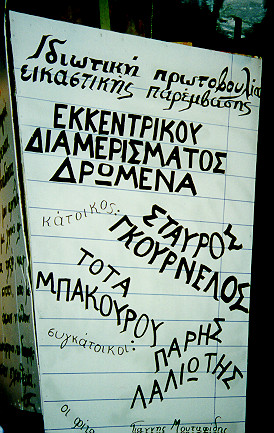 Ιδιωτική πρωτοβουλία
εικαστικής παρέμβασης
ΕΚΚΕΝΤΡΙΚΟΥ
ΔΙΑΜΕΡΙΣΜΑΤΟΣ
ΔΡΩΜΕΝΑ
κάτοικος:
ΣΤΑΥΡΟΣ
ΓΚΟΥΡΝΕΛΟΣ
ΤΟΤΑ
ΜΠΑΚΟΥΡΟΥ
συγκάτοικοι:
ΠΑΡΗΣ
ΛΑΛΙΩΤΗΣ
οι
Γιάννης Μουταφίδης